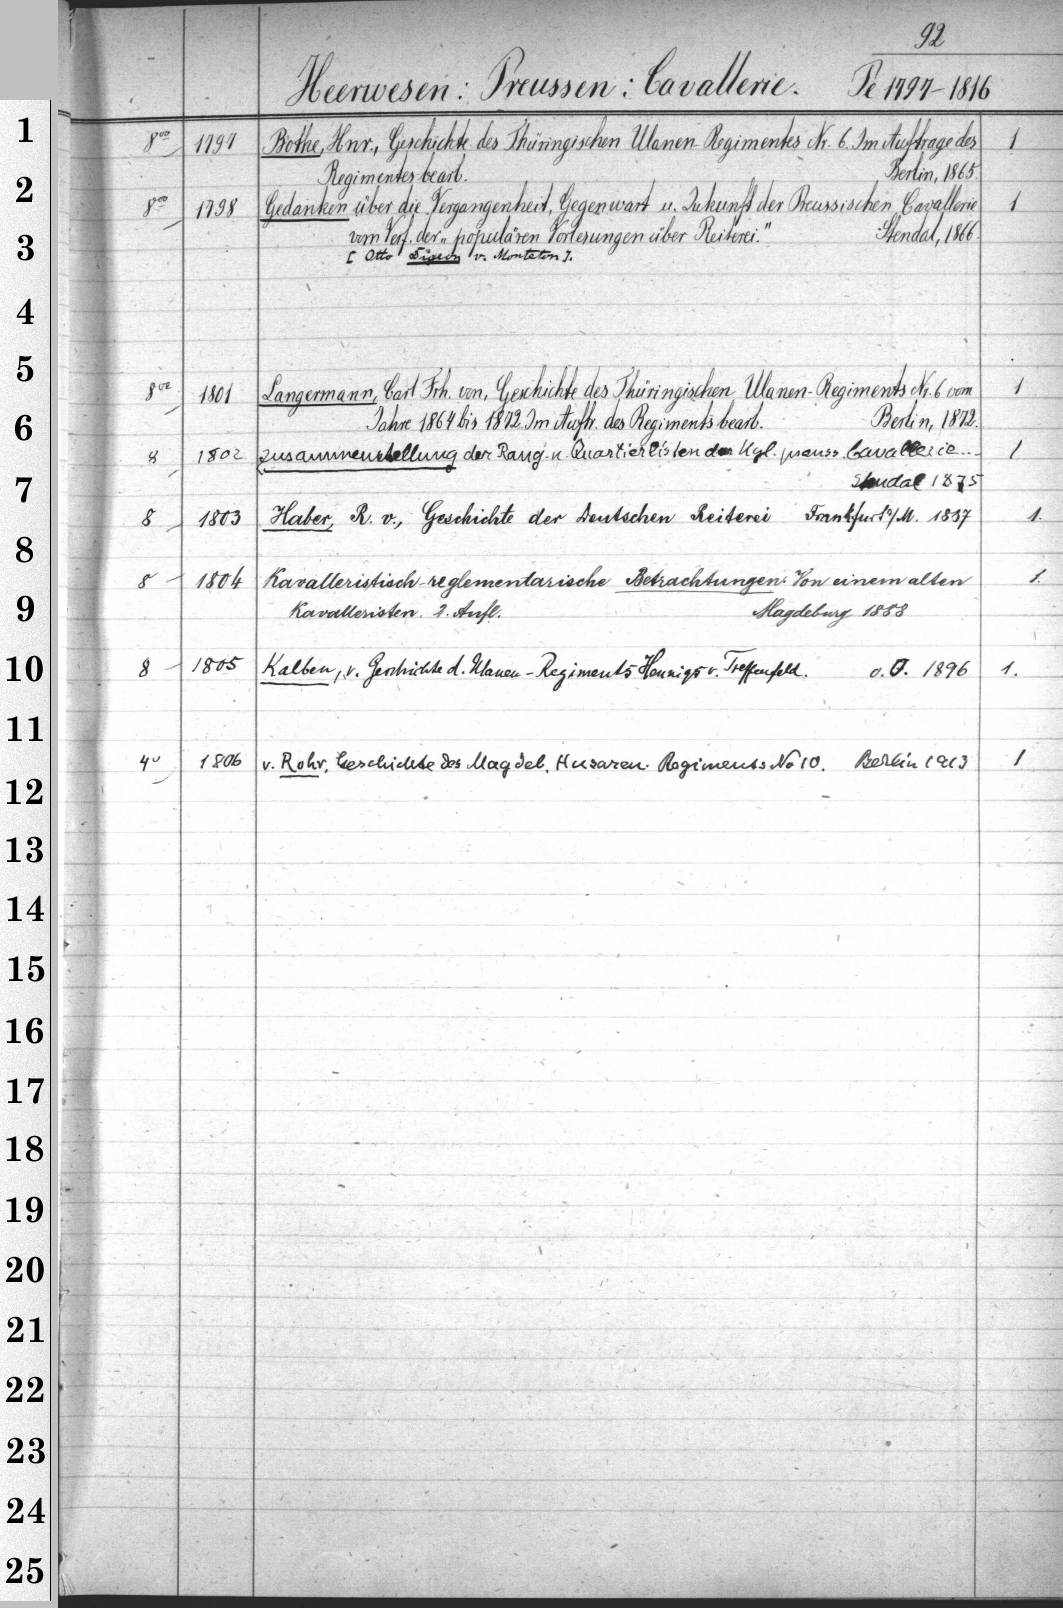 92
Heerwesen: Preussen: Cavallerie. Pe 1797-1816
8vo 1797 Bothe, Hnr., Geschichte des Thüringischen Ulanen-Regimentes Nr. 6. Im Auftrage des 1
Regimentes bearb. Berlin, 1865.
8vo 1798 Gedanken über die Vergangenheit, Gegenwart u. Zukunft der Preussischen Cavallerie 1
vom Verf. der „populären Vorlesungen über Reiterei." Stendal, 1866.
[Otto Digeon v. Monteton].
8vo 1801 Langermann, Carl Frh. von, Geschichte des Thüringischen Ulanen-Regiments Nr. 6 vom 1
Jahre 1864 bis 1872. Im Auftr. des Regiments bearb. Berlin, 1872.
8 1802 Zusammenstellung der Rang- u. Quartierlisten der Kgl. preuss. Cavallerie... 1
Stendal 1875
8 1803 Haber, R. v., Geschichte der Deutschen Reiterei Frankfurt a/M. 1887 1.
8 1804 Kavalleristisch-reglementarische Betrachtungen. Von einem alten 1.
Kavalleristen. 2. Aufl. Magdeburg 1888
8 1805 Kalben, v. Geschichte d. Ulanen-Regiments Hennigs v. Treffenfeld. o. O. 1896 1.
4o 1806 v. Rohr, Geschichte des Magdeb. Husaren-Regiments No 10. Berlin 1913 1
1
2
3
4
5
6
7
8
9
10
11
12
13
14
15
16
17
18
19
20
21
22
23
24
25